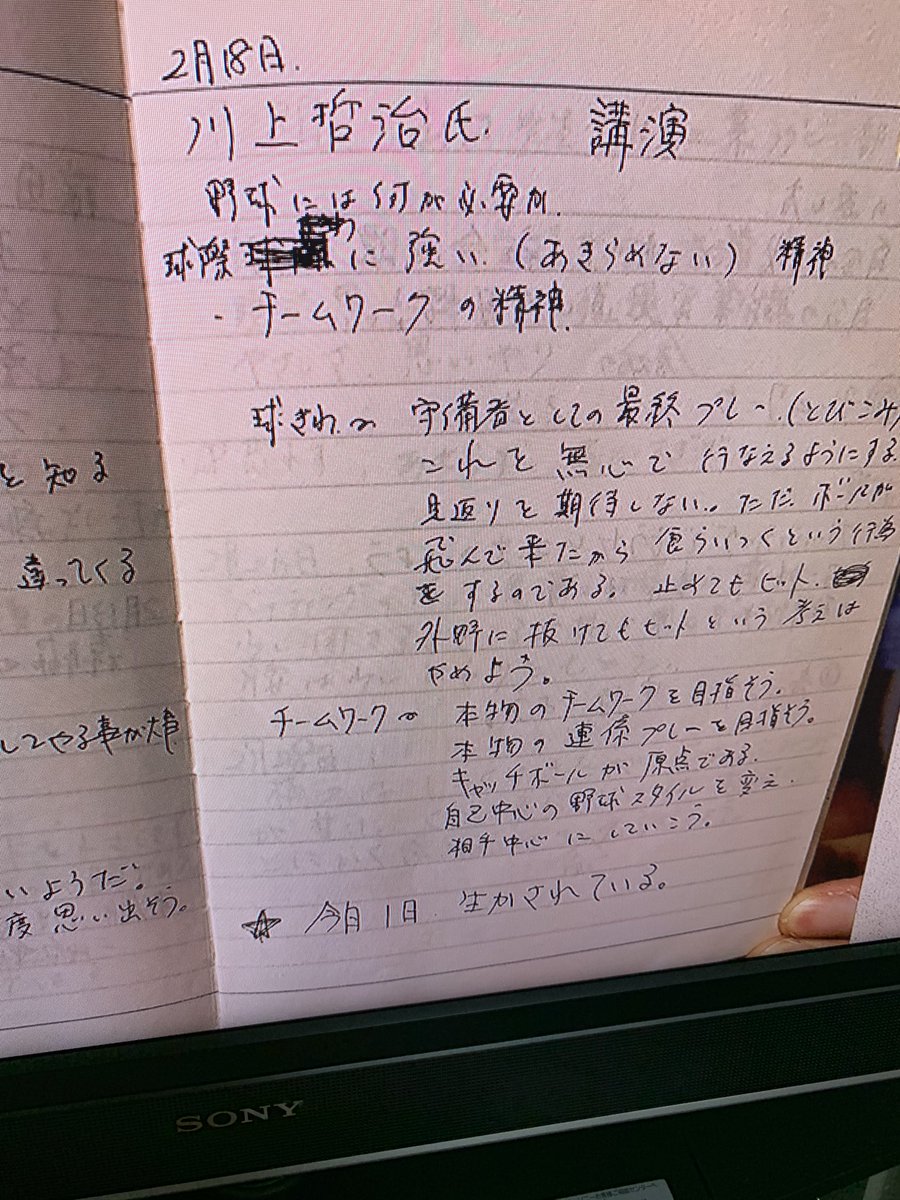 2月18日.
川上哲治氏. 講演
野球には何が必要か.
球際 に強い.(あきらめない) 精神
・チームワークの精神.
球ぎわ〜 守備者としての最終プレー.(とびこみ)
これを無心で行なえるようにする.
見返りを期待しない。ただ.ボールが
飛んで来たから食らいつくという行為
をするのである。止めてもヒット.
外野に抜けてもヒットという考えは
やめよう。
チームワーク〜 本物のチームワークを目指そう.
本物の連係プレーを目指そう。
キャッチボールが原点である.
自己中心の野球スタイルを変え.
相手中心にしていこう。
☆ 今日1日.生かされている。
と知る
違ってくる
してやる事が大事
いようだ。
度思い出そう。
SONY